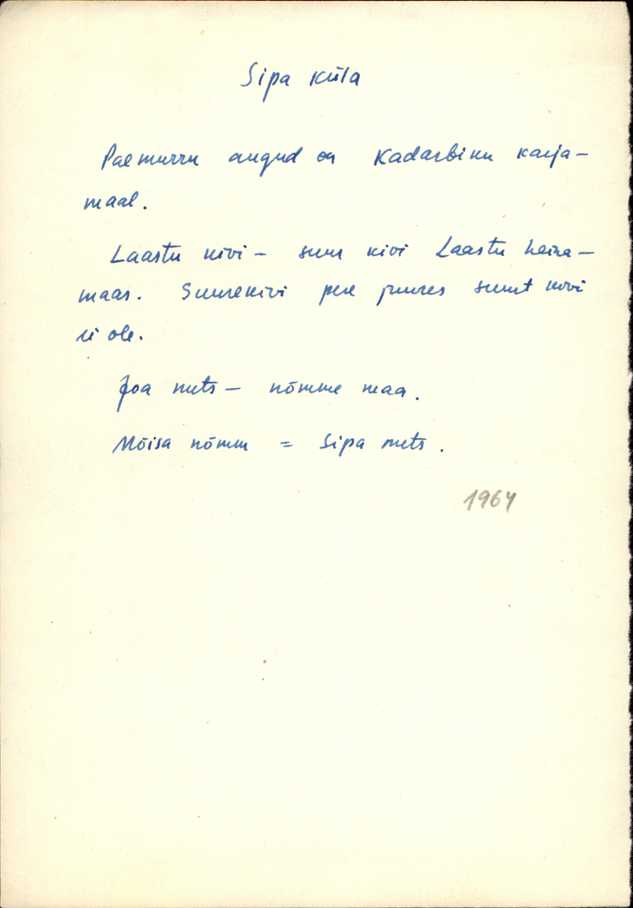 Sipa küla
Paemurru augud on Kadarbiku karja-
maal.
Laastu kivi – suur kivi Laastu heina-
maas. Suurekivi pere juures suurt kivi
ei ole.
Joa mets – nõmme maa.
Mõisa nõmm = Sipa mets.
1964